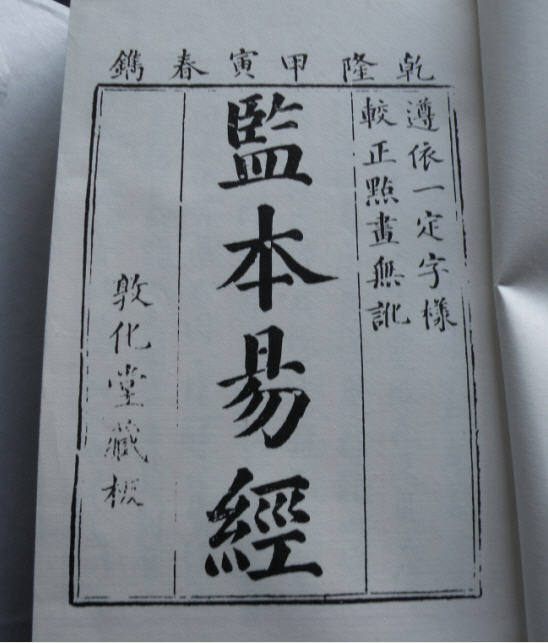 乾隆甲寅春鐫
遵依一定字樣
較正點畫無訛
監本易經
敦化堂藏板